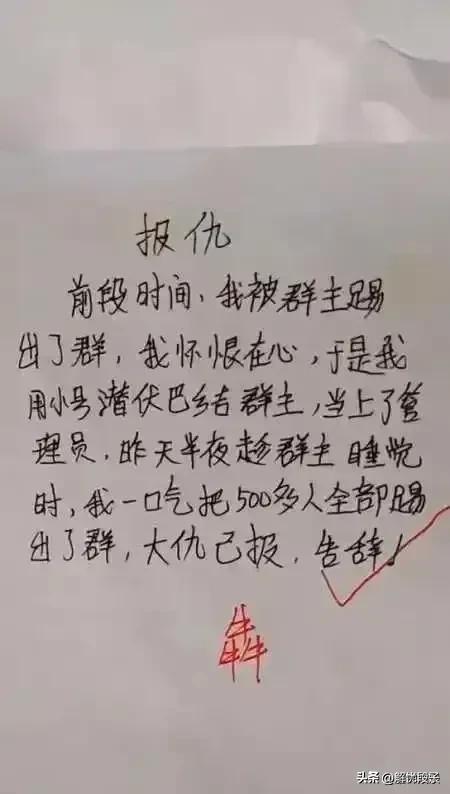 报仇
前段时间、我被群主踢
出了群，我怀恨在心，于是我
用小号潜伏巴结群主，当上了管
理员．昨天半夜趁群主睡觉
时，我一口气把500多人全部踢
出了群，大仇已报．告辞！
犇
头条 @解忧段子